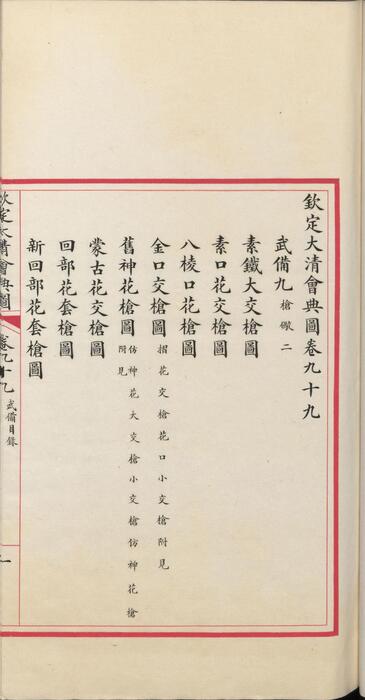 欽定大清會典圖卷九十九
武備九 槍礮二
素鐵大交槍圖
素口花交槍圖
八棱口花槍圖
金口交槍圖 摺花交槍花口小交槍附見
舊神花槍圖 仿神花大交槍小交槍仿神花槍附見
蒙古花交槍圖
回部花套槍圖
新回部花套槍圖
欽定大清會典圖 卷九十九 武備目錄 一